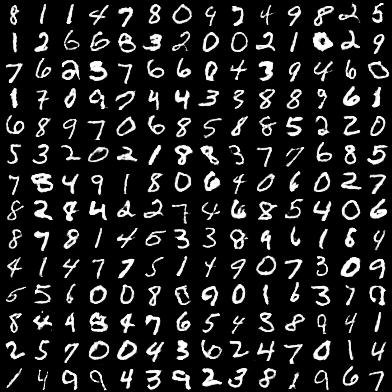 8 1 1 4 7 8 0 9 2 4 9 8 2 5
1 2 6 6 8 3 2 0 0 2 1 0 2 9
7 6 2 3 7 6 6 0 4 3 9 4 6 0
1 7 0 9 7 4 4 3 3 8 8 9 6 1
6 8 9 7 0 6 8 5 8 8 5 2 2 0
5 3 2 0 2 1 8 8 3 7 7 6 8 5
7 8 4 9 1 8 0 6 4 0 6 0 2 7
8 2 8 4 2 2 7 4 6 8 5 4 0 6
8 7 8 1 4 5 3 3 8 9 6 1 6 4
4 1 4 7 7 5 1 4 9 0 7 3 0 9
5 5 6 0 0 8 0 9 0 1 6 3 7 8
8 4 9 8 4 7 6 5 4 3 8 9 4 1
2 5 7 0 0 4 3 6 2 4 7 0 1 4
1 4 9 9 4 3 9 2 3 8 1 9 6 7